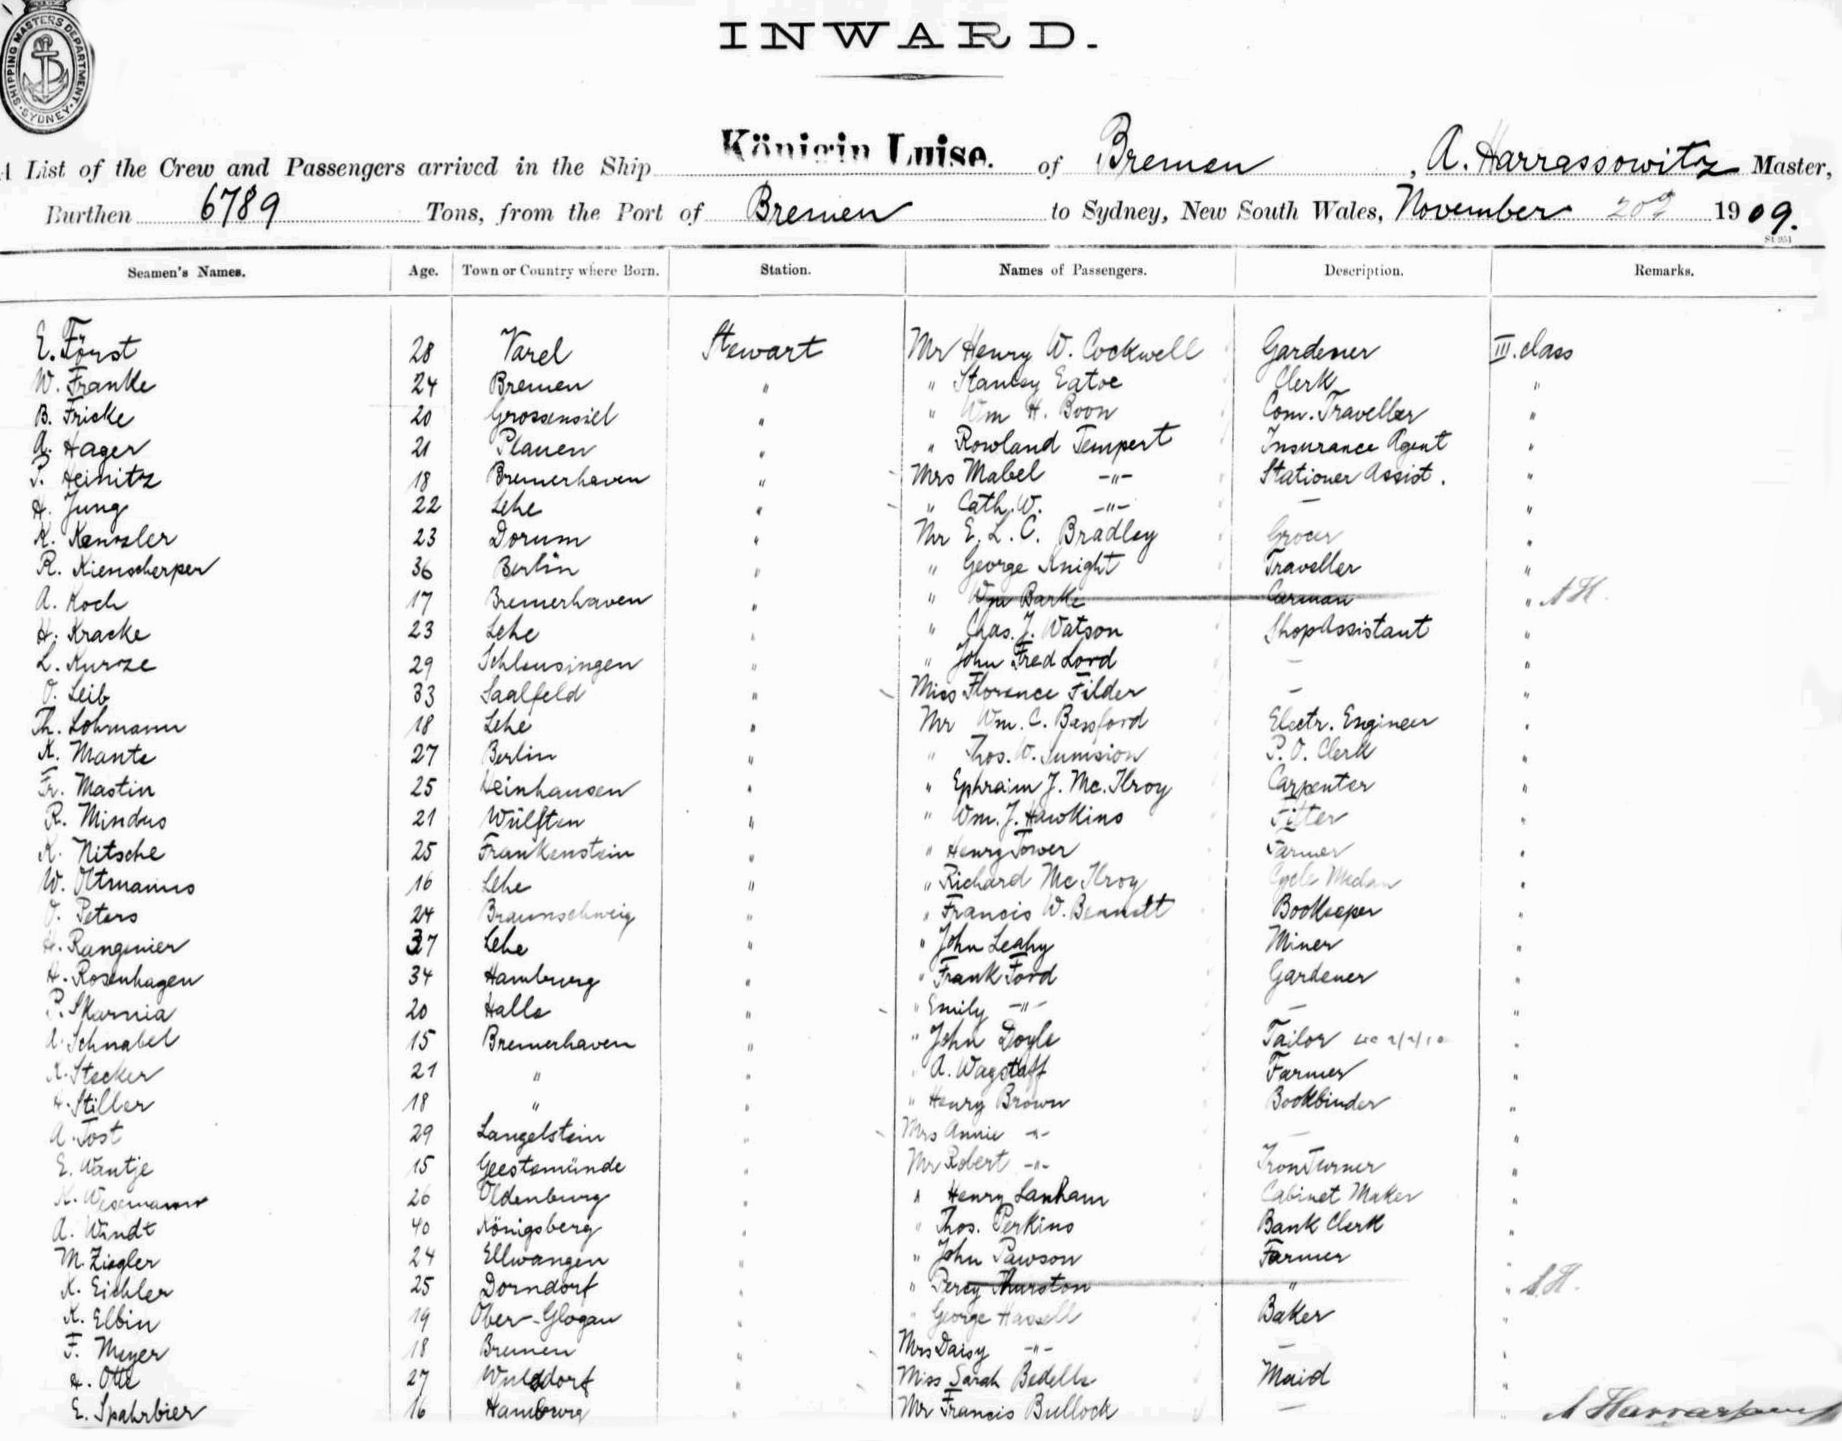 SHIPPING MASTERS DEPARTMENT. SYDNEY
INWARD.
A List of the Crew and Passengers arrived in the Ship Königin Luise. of Bremen, A. Harrassowitz Master,
Burthen 6789 Tons, from the Port of Bremen to Sydney, New South Wales, November 1909.
Seamen's Names. Age. Town or Country where Born. Station. Names of Passengers. Description. Remarks.
E. Först 28 Varel Stewart Mr Henry W. Cockwell Gardener III. class
W. Franke 24 Bremen " " Stanley Eatoe Clerk "
B. Fricke 20 Grossensiel " " Wm H. Boon Com. Traveller "
A. Hager 21 Plauen " " Rowland Tempert Insurance Agent "
P. Heinitz 18 Bremerhaven " Mrs Mabel -"- Stationer Assist. "
H. Jung 22 Lehe " " Cath. W. -"- — "
K. Kanzler 23 Dorum " Mr E. L. C. Bradley Grocer "
R. Kienscherper 36 Berlin " " George Knight Traveller "
A. Koch 17 Bremerhaven " " Wm Barke Carman " A H.
H. Kracke 23 Lehe " " Chas. J. Watson Shop Assistant "
L. Kurze 29 Schleusingen " " John Fred Lord — "
O. Leib 33 Saalfeld " Miss Florence Filder — "
Th. Lohmann 18 Lehe " Mr Wm. C. Bassford Electr. Engineer "
K. Mante 27 Berlin " " Thos. W. Sumsion P. O. Clerk "
Fr. Mastin 25 Heinhausen " " Ephraim J. Mc. Ilroy Carpenter "
R. Mindus 21 Wülften " " Wm. J. Hawkins Fitter "
K. Nitsche 25 Frankenstein " " Henry Tower Farmer "
W. Oltmanns 16 Lehe " " Richard Mc Ilroy Cycle "
O. Peters 24 Braunschweig " " Francis W. Bennett Bookeeper "
H. Rangenier 37 Lehe " " John Leahy Miner "
H. Rosenhagen 34 Hamburg " " Frank Ford Gardener "
P. Skarnia 20 Halle " " Emily -"- — "
Schnabel 15 Bremerhaven " " John Doyle Tailor "
Stecker 21 " " " A. Wagstaff Farmer "
Stiller 18 " " " Henry Brown Bookbinder "
A. Tost 29 Langelstein " Mrs Annie -"- — "
E. Wantje 15 Geestemünde " Mr Robert -"- Iron Turner "
K. Wesemann 26 Oldenburg " " Henry Lanham Cabinet Maker "
A. Windt 40 Königsberg " " Thos. Perkins Bank Clerk "
M. Ziegler 24 Ellwangen " " John Pawson Farmer "
K. Eichler 25 Dorndorf " " Percy Thurston " " A. H.
K. Elbin 19 Ober-Glogau " " George Hassell Baker "
F. Meyer 18 Bremen " Mrs Daisy -"- — "
Otte 27 Wulsdorf " Miss Sarah Bedells Maid "
E. Spahrbier 16 Hamburg " Mr Francis Bullock — " A Harrassowitz